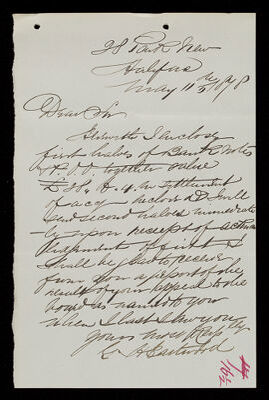 28 Park View
Halifax
May 11th 1898
Dear Sir
Herewith I enclose
first halves of Bank Notes
& P.O.O. together value
£ 4 in settlement
of a/c enclosed & will
send second halves immediate
ly upon receipt of
of first I
shall be glad to receive
from you a report of the
result of your appeal to the
board as named to you
when I last saw you
yours most respty
Eastwood